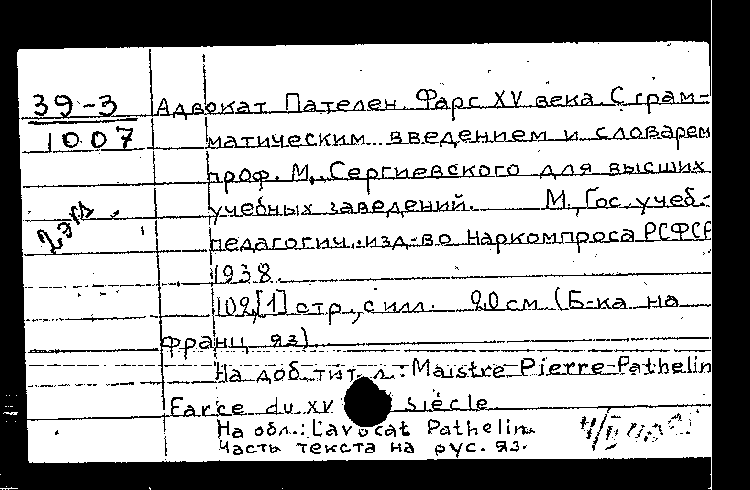 39-3 Адвокат Пателен. Фарс XV века. С грам-
1007 матическим введением и словарем
проф. М. Сергиевского для высших
учебных заведений. М., Гос. учеб.-
2 экз. педагогич. изд-во Наркомпроса РСФСР
1938.
102,[1] стр., с илл. 20 см (Б-ка на
франц. яз)
На доб. тит. л.: Maistre Pierre Pathelin
Farce du XV siècle
На обл.: L'avocat Pathelin.
Часть текста на рус. яз.